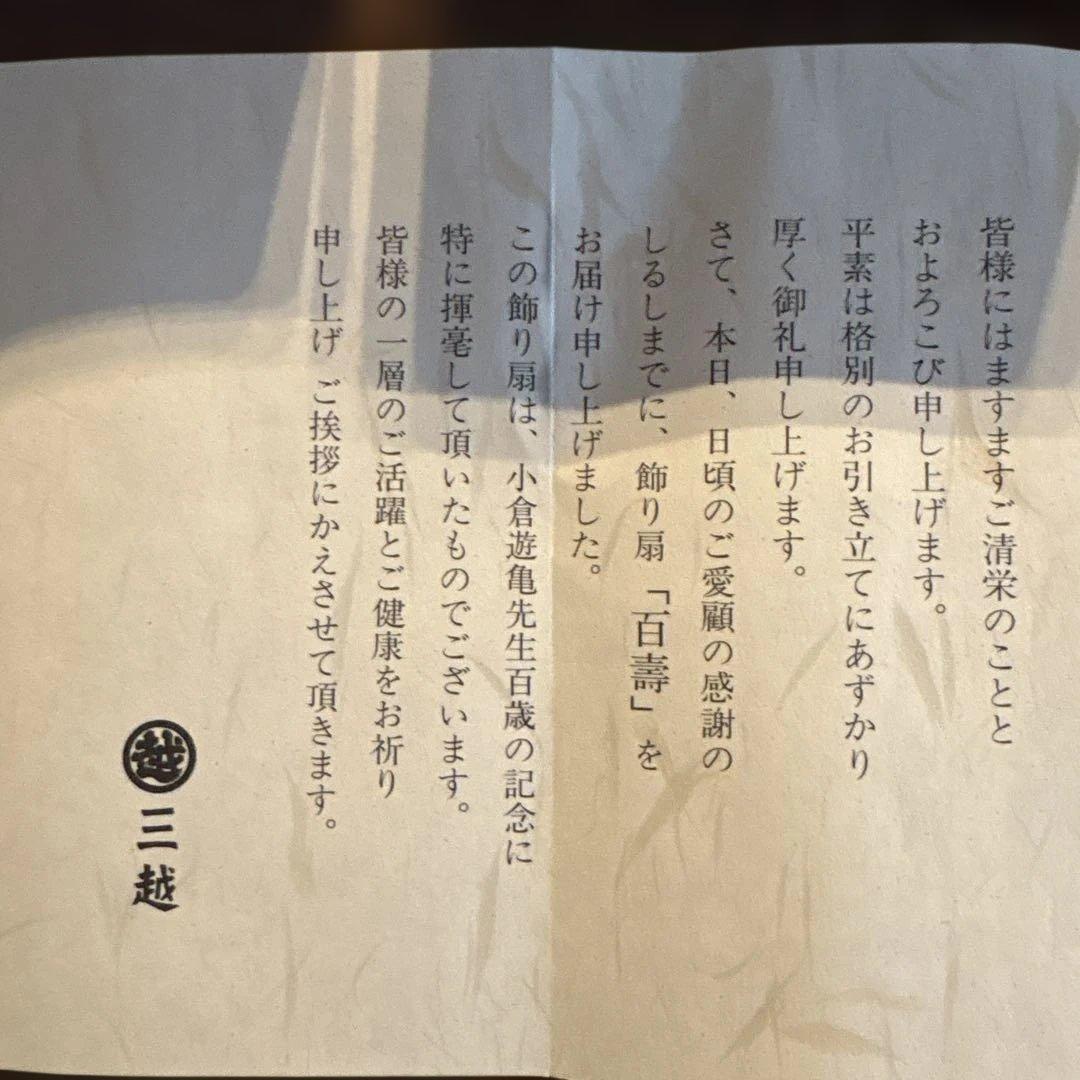 皆様にはますますご清栄のことと
およろこび申し上げます。
平素は格別のお引き立てにあずかり
厚く御礼申し上げます。
さて、本日、日頃のご愛顧の感謝の
しるしまでに、飾り扇「百壽」を
お届け申し上げました。
この飾り扇は、小倉遊亀先生百歳の記念に
特に揮毫して頂いたものでございます。
皆様の一層のご活躍とご健康をお祈り
申し上げ ご挨拶にかえさせて頂きます。
越 三越